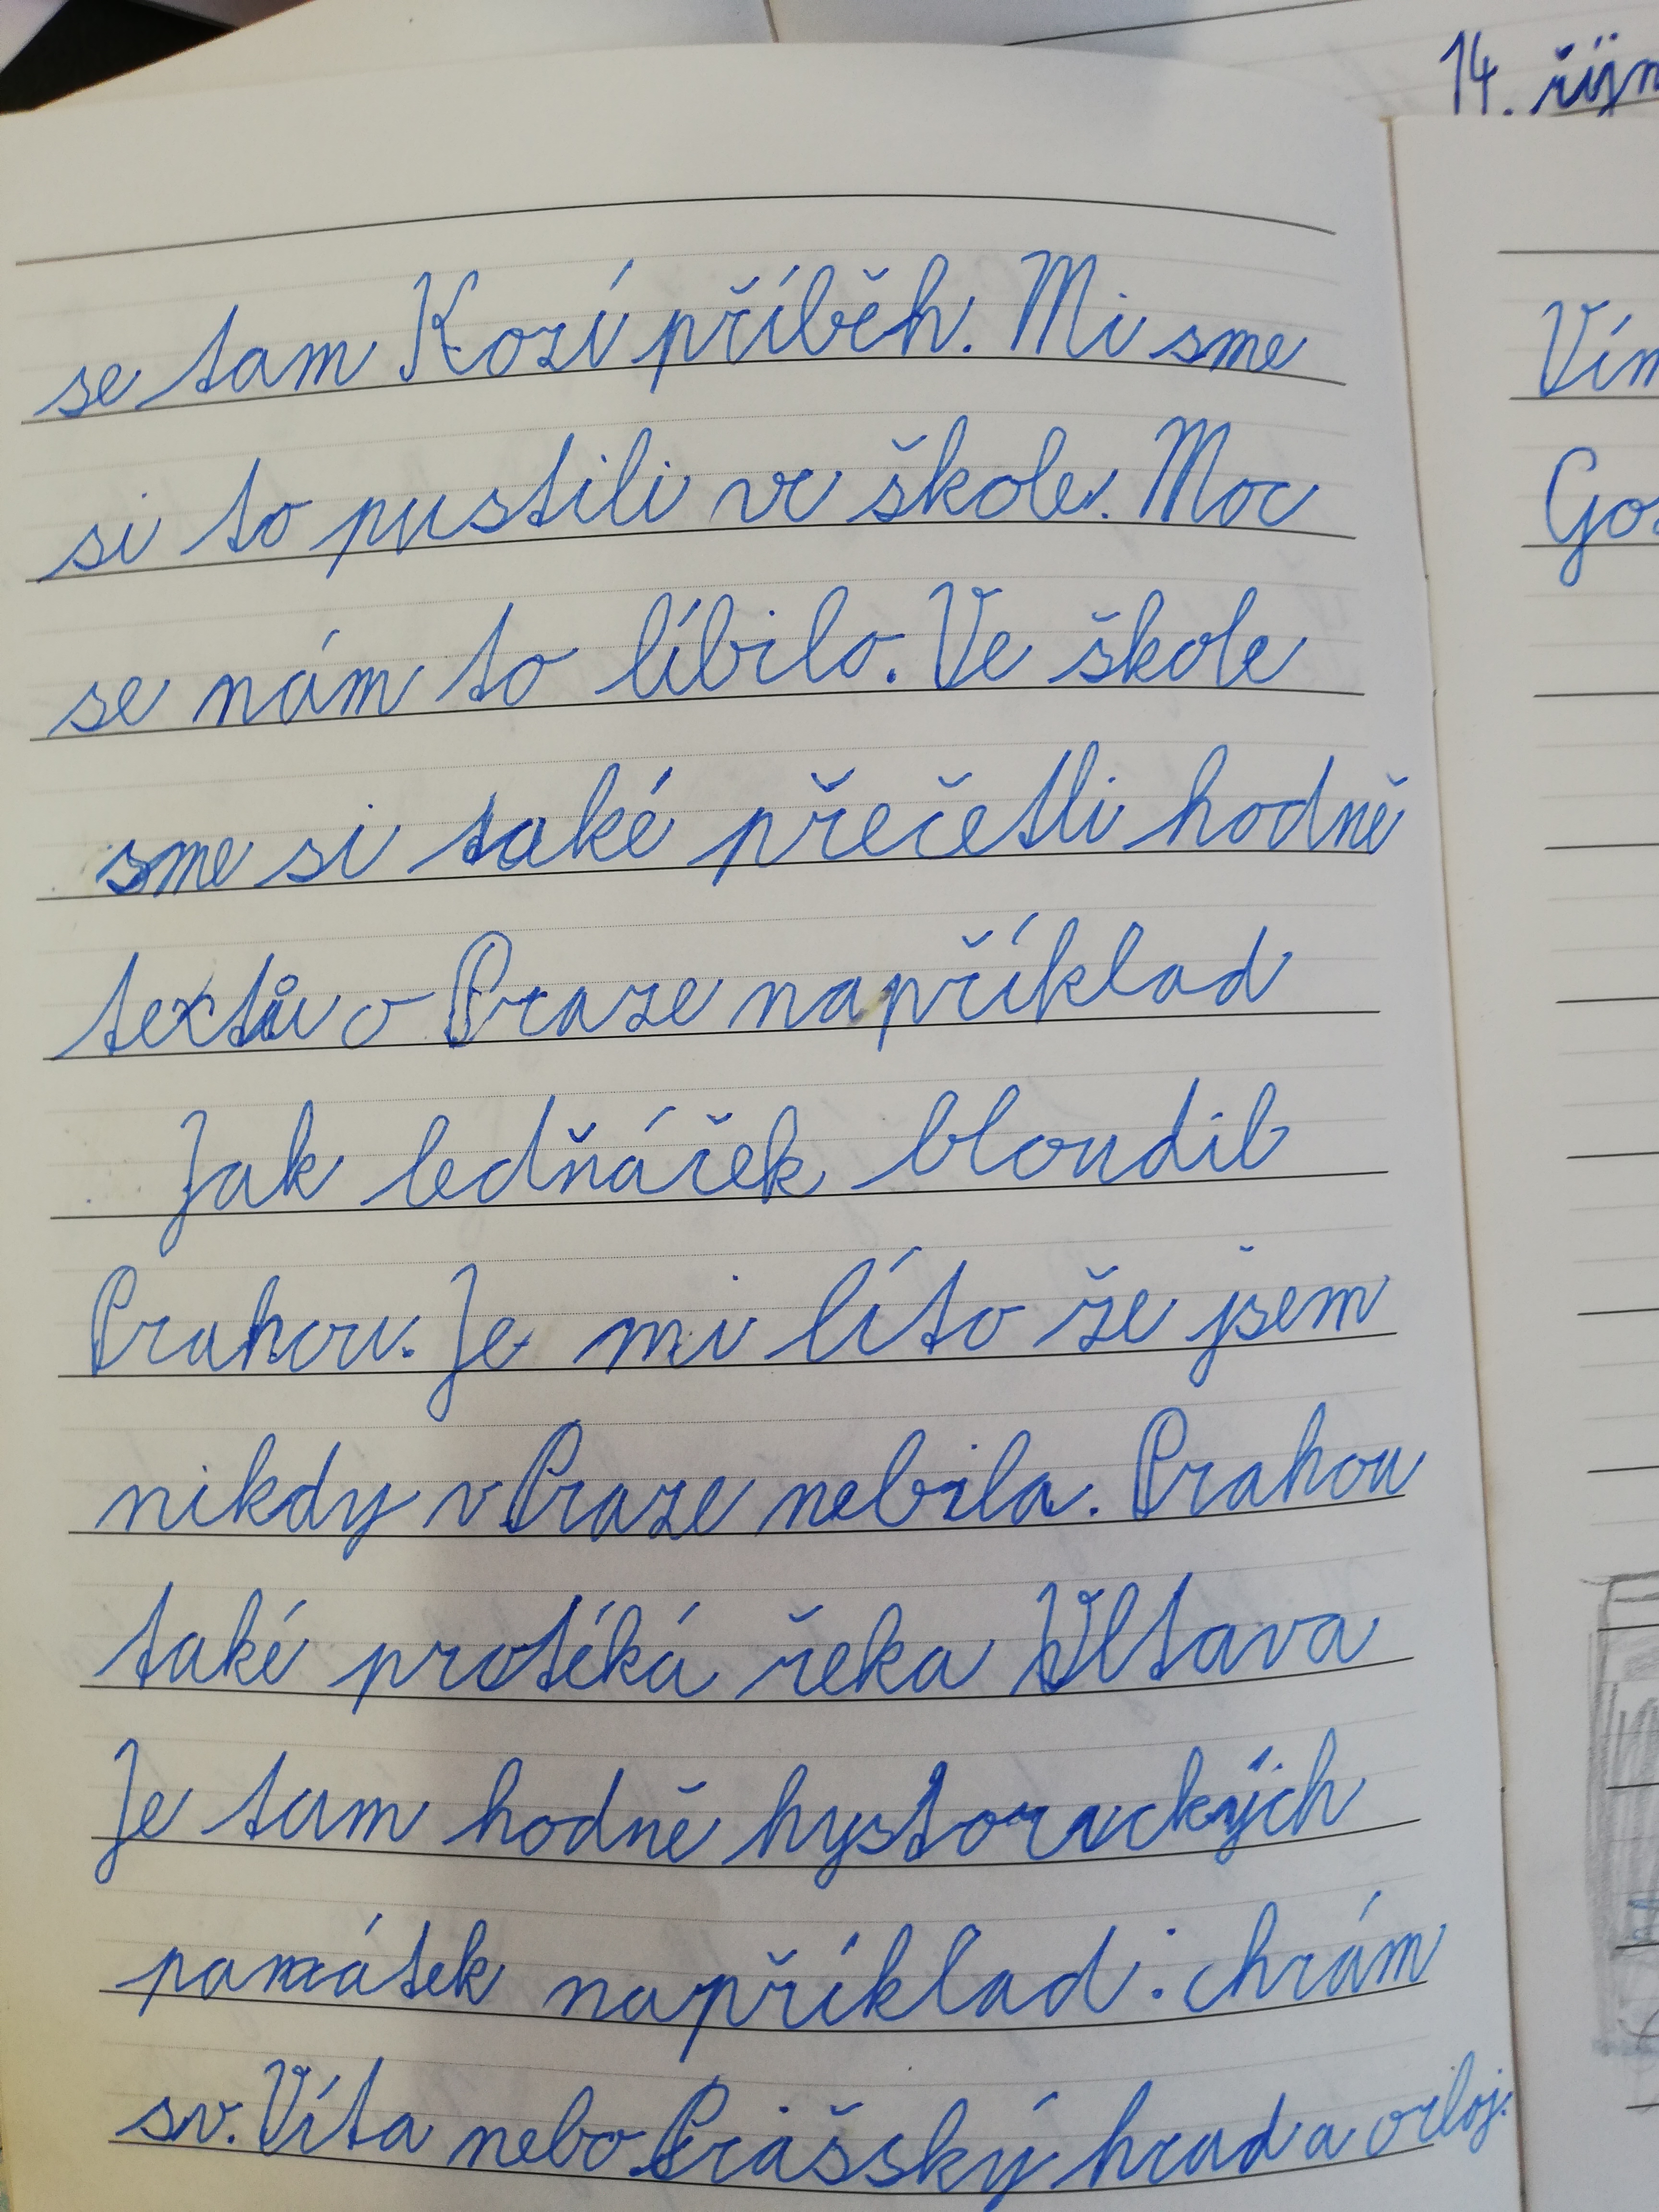 14. říjn
se tam Kozí příběh. Mi sme
si to pustili ve škole. Moc
se nám to líbilo. Ve škole
sme si také přečetli hodně
textů o Praze například
Jak ledňáček bloudil
Prahou. Je mi líto že jsem
nikdy v Praze nebila. Prahou
také protéká řeka Vltava
Je tam hodně hystorických
památek například: chrám
sv. Víta nebo Prášský hrad a orloj.
Vím
Gos